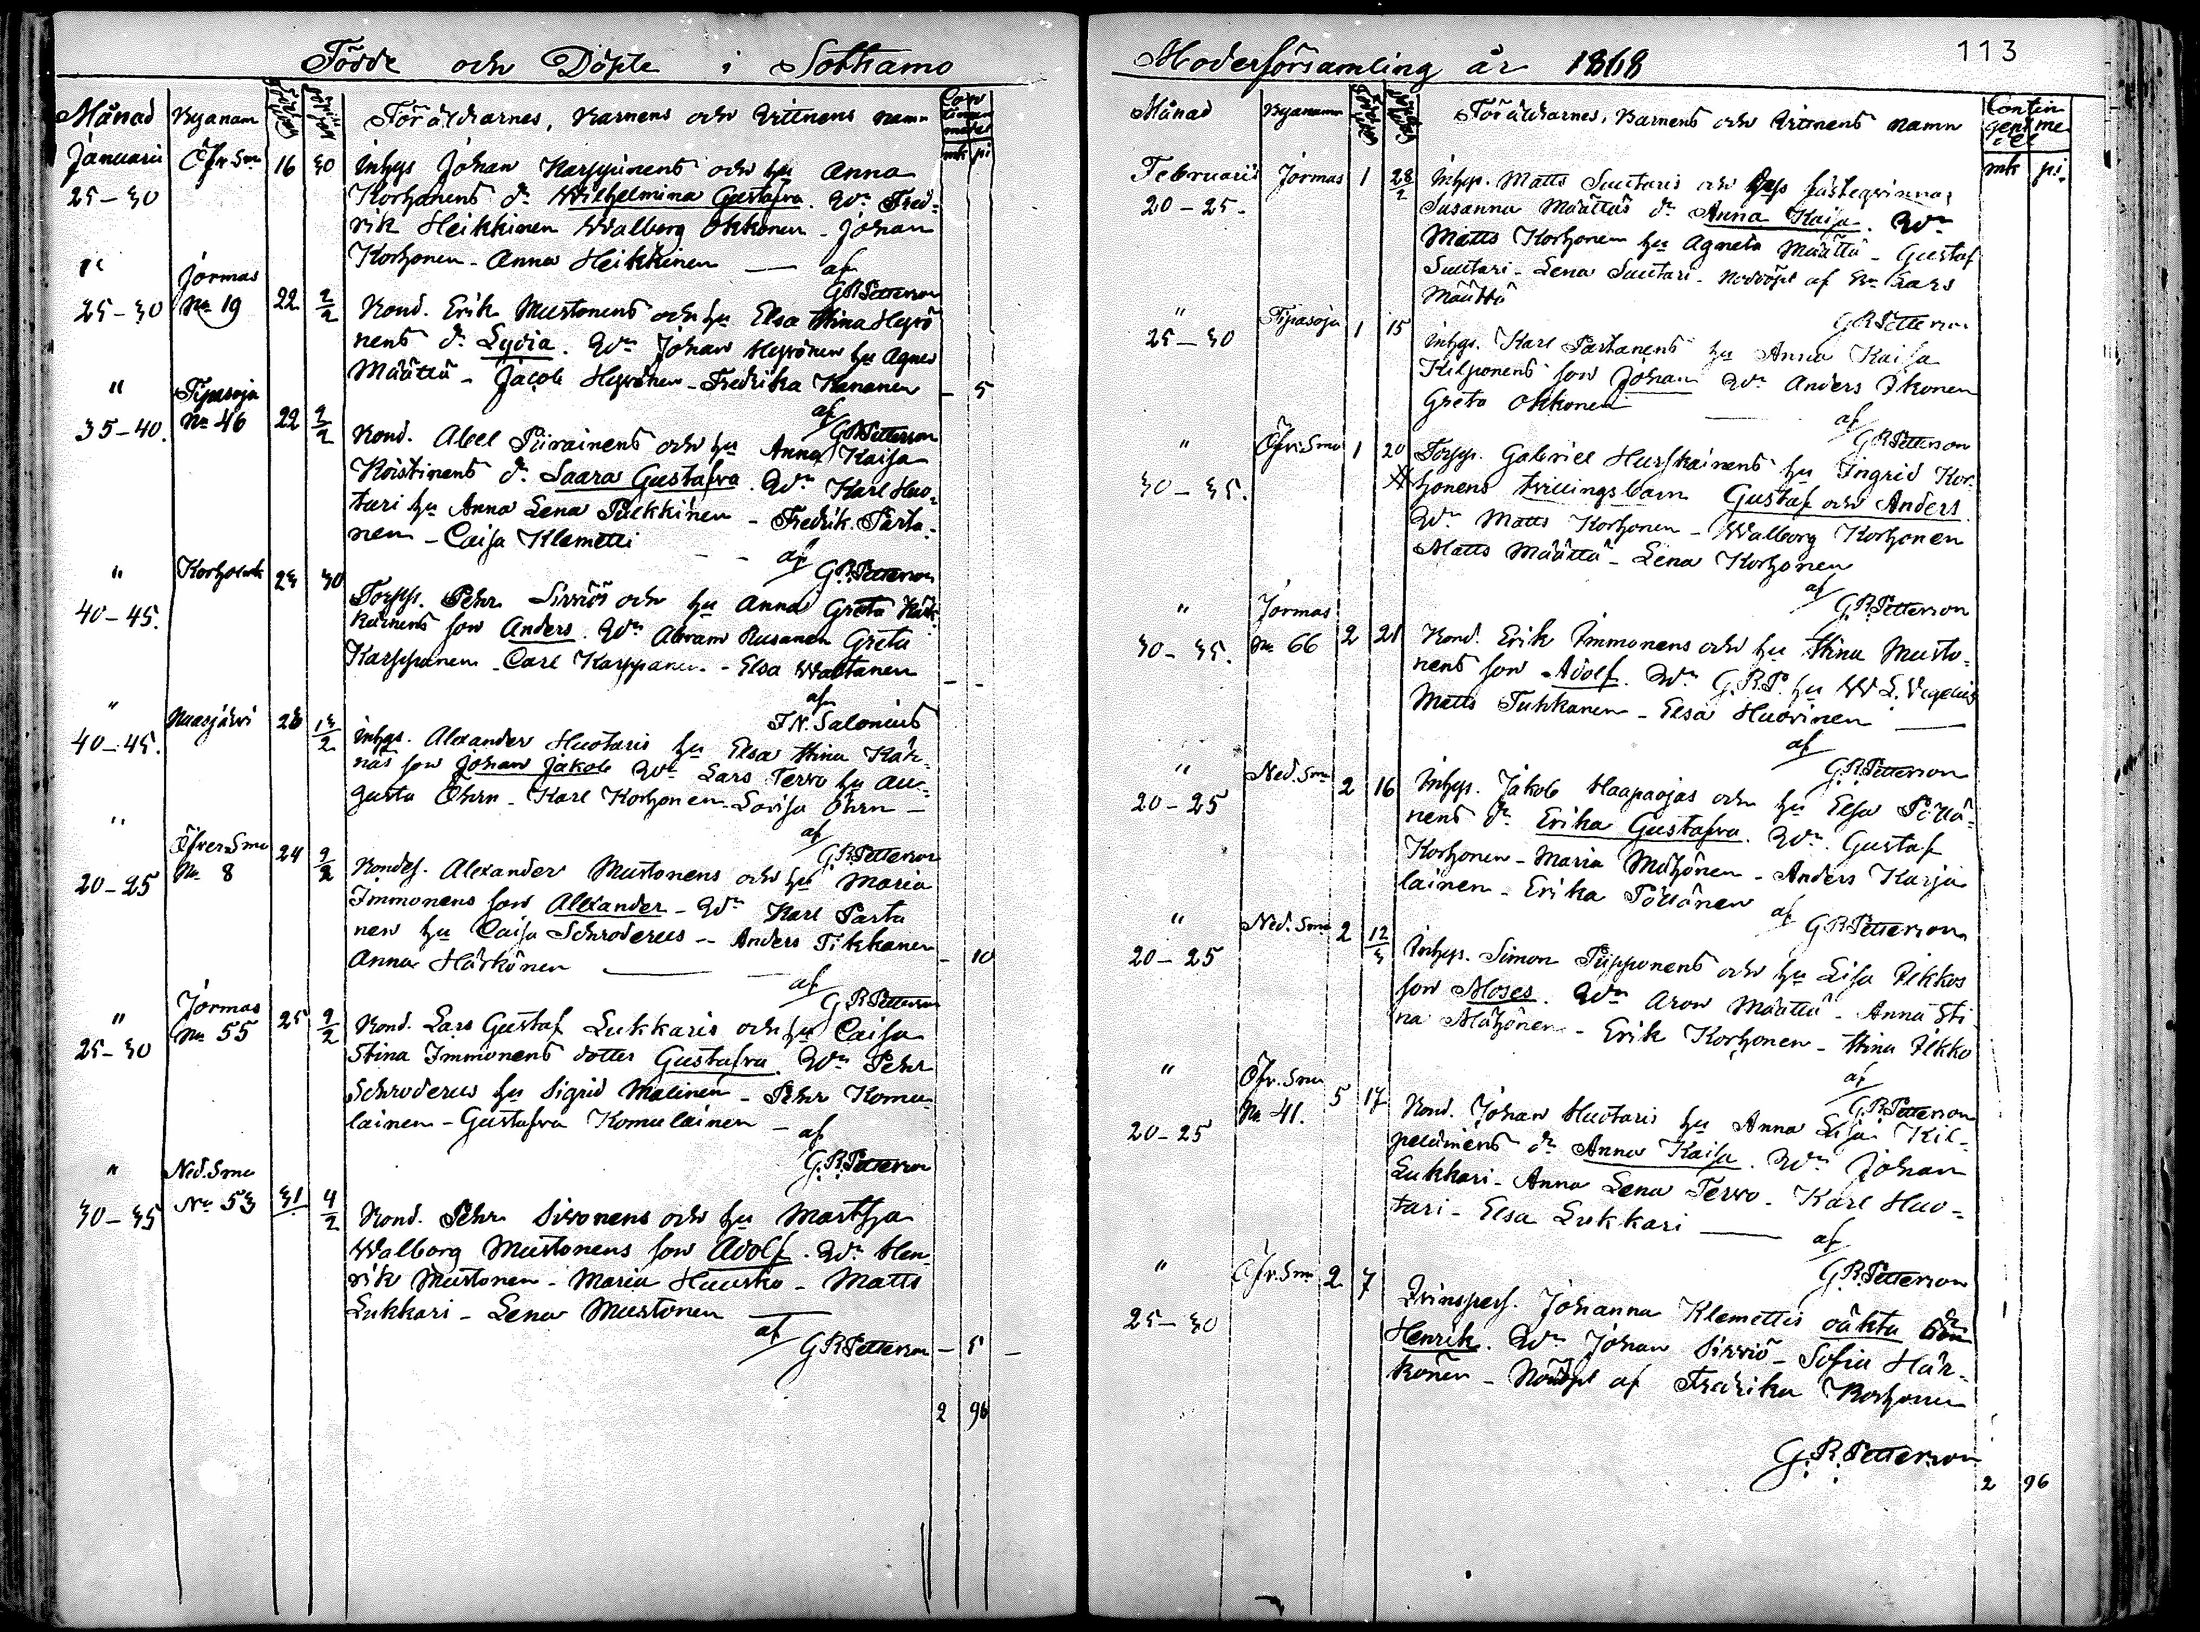 Födde och Döpte i Sotkamo
Månad Byanamn Föräldrarnes, Barnens och Vittnens namn
mk pi
Januarii Öfr.Sm. 16 30 Inhys Johan Karppinens och hu Anna
25–30 Korhonens dr Wilhelmina Gustafva. Wn Fred-
rik Heikkinen Walborg Okkonen – Johan
Korhonen – Anna Heikkinen — af
G.R.Petterson
" Jormas
25–30 No 19 22 2/2 Bond. Erik Mustonens och hu Elsa Stina Hyvö
nens dr Lydia. Wn Johan Hyvönen hu Agnes
Määttä – Jacob Hyvönen – Fredrika Kananen – 5
af G.R.Petterson
" Tipasoja
35–40. No 46 22 2/2 Bond. Abel Piirainens och hu Anna Kaisa
Koistinens dr Saara Gustafva. Wn Karl Huo-
tari hu Anna Lena Pulkkinen – Fredrik Parta-
nen – Caisa Klemetti – – af
G.R.Petterson
" 23 30
40–45. Torpp. Pehr Sirviös och hu Anna Greta
käinens son Anders. Wn Abram Rusanen Greta
Karppanen – Carl Karppanen – Elsa Waltanen – –
af
J.N.Salonius
" Naasjärvi 23 13/2
40–45. Inhys. Alexander Huotaris hu Elsa Stina Kär-
näs son Johan Jakob Wn Lars Tervo hu Au-
gusta Öhrn – Karl Korhonen – Lovisa Öhrn –
af
G.R.Petterson
" Öfver.Sm
20–25 No 8 24 9/2 Bondes. Alexander Mustonens och hu Maria
Immonens son Alexander – Wn Karl Parta
nen hu Caisa Schroderus – Anders Tikkanen
Anna Härkönen — — 10
af
G.R.Petterson
" Jormas
25–30 No 55 25 9/2 Bond. Lars Gustaf Lukkaris och hu Caisa
Stina Immonens dotter Gustafva. Wn Pehr
Schroderus hu Sigrid Malinen – Pehr Komu-
lainen – Gustafva Komulainen – af
G.R.Petterson
" Ned.Sm
30–35 No 53 31 4/2 Bond. Pehr Sirvonens och hu Martha
Walborg Mustonens son Adolf. Wn Hen
rik Mustonen – Maria Huusko – Matts
Lukkari – Lena Mustonen —
af G.R.Petterson – 5 –
2 96
Moderförsamling år 1868 113
Månad Byanamn Föräldrarnes, Barnens och Vittnens namn
mk pi.
Februarii Jormas 1 28/2 Inhys. Matts Suutaris och fästeqvinnas
20–25. Susanna Määttäs dr Anna Kaisa. Wn
Matts Korhonen hu Agneta Määttä – Gustaf
Suutari – Lena Suutari – Nöddöpt af Bn Lars
Määttä
G.R.Petterson
" Tipasoja 1 15
25–30 Inhys. Karl Partanens hu Anna Kaisa
Kilponens son Johan Wn Anders Ikonen
Greta Okkonen — af
G.R.Petterson
" Öfvr.Sm 1 20 Torpp. Gabriel Hurskainens hu Ingrid Kor-
30–35. honens tvillingsbarn Gustaf och Anders.
Wn Matts Korhonen – Walborg Korhonen
Matts Määttä – Lena Korhonen
af
G.R.Petterson
" Jormas
30–35. No 66 2 21 Bond. Erik Immonens och hu Stina Musto-
nens son Adolf. Wn G.R.P. hu W L. Vigelius
Matts Tuhkanen – Elsa Huovinen —
af
G.R.Petterson
" Ned.Sm 2 16 Inhys. Jakob Haapaojas och hu Elsa Pöllä-
20–25 nens dr Erika Gustafva. Wn Gustaf
Korhonen – Maria Möhönen – Anders Karja
lainen – Erika Pöllänen af
G.R.Petterson
" Ned.Sm 2 12/3
20–25 Inhys. Simon Piipponens och hu Lisa Pikkos
son Moses. Wn Aron Määttä – Anna Sti
na Möhönen – Erik Korhonen – Stina Pikko
af
G.R.Petterson
" Öfr.Sm
20–25 No 41. 5 17 Bond. Johan Huotaris hu Anna Lisa Kil-
peläinens dr Anna Kaisa. Wn Johan
Lukkari – Anna Lena Tervo – Karl Huo-
tari – Elsa Lukkari — af
G.R.Petterson
" Öfr.Sm 2 7
25–30 Qvinspers. Johanna Klemettis oäkta
Henrik. Wn Johan Sirviö – Sofia Här-
könen – Nöddöpt af Fredrika Korhonen
G.R.Petterson
2 96